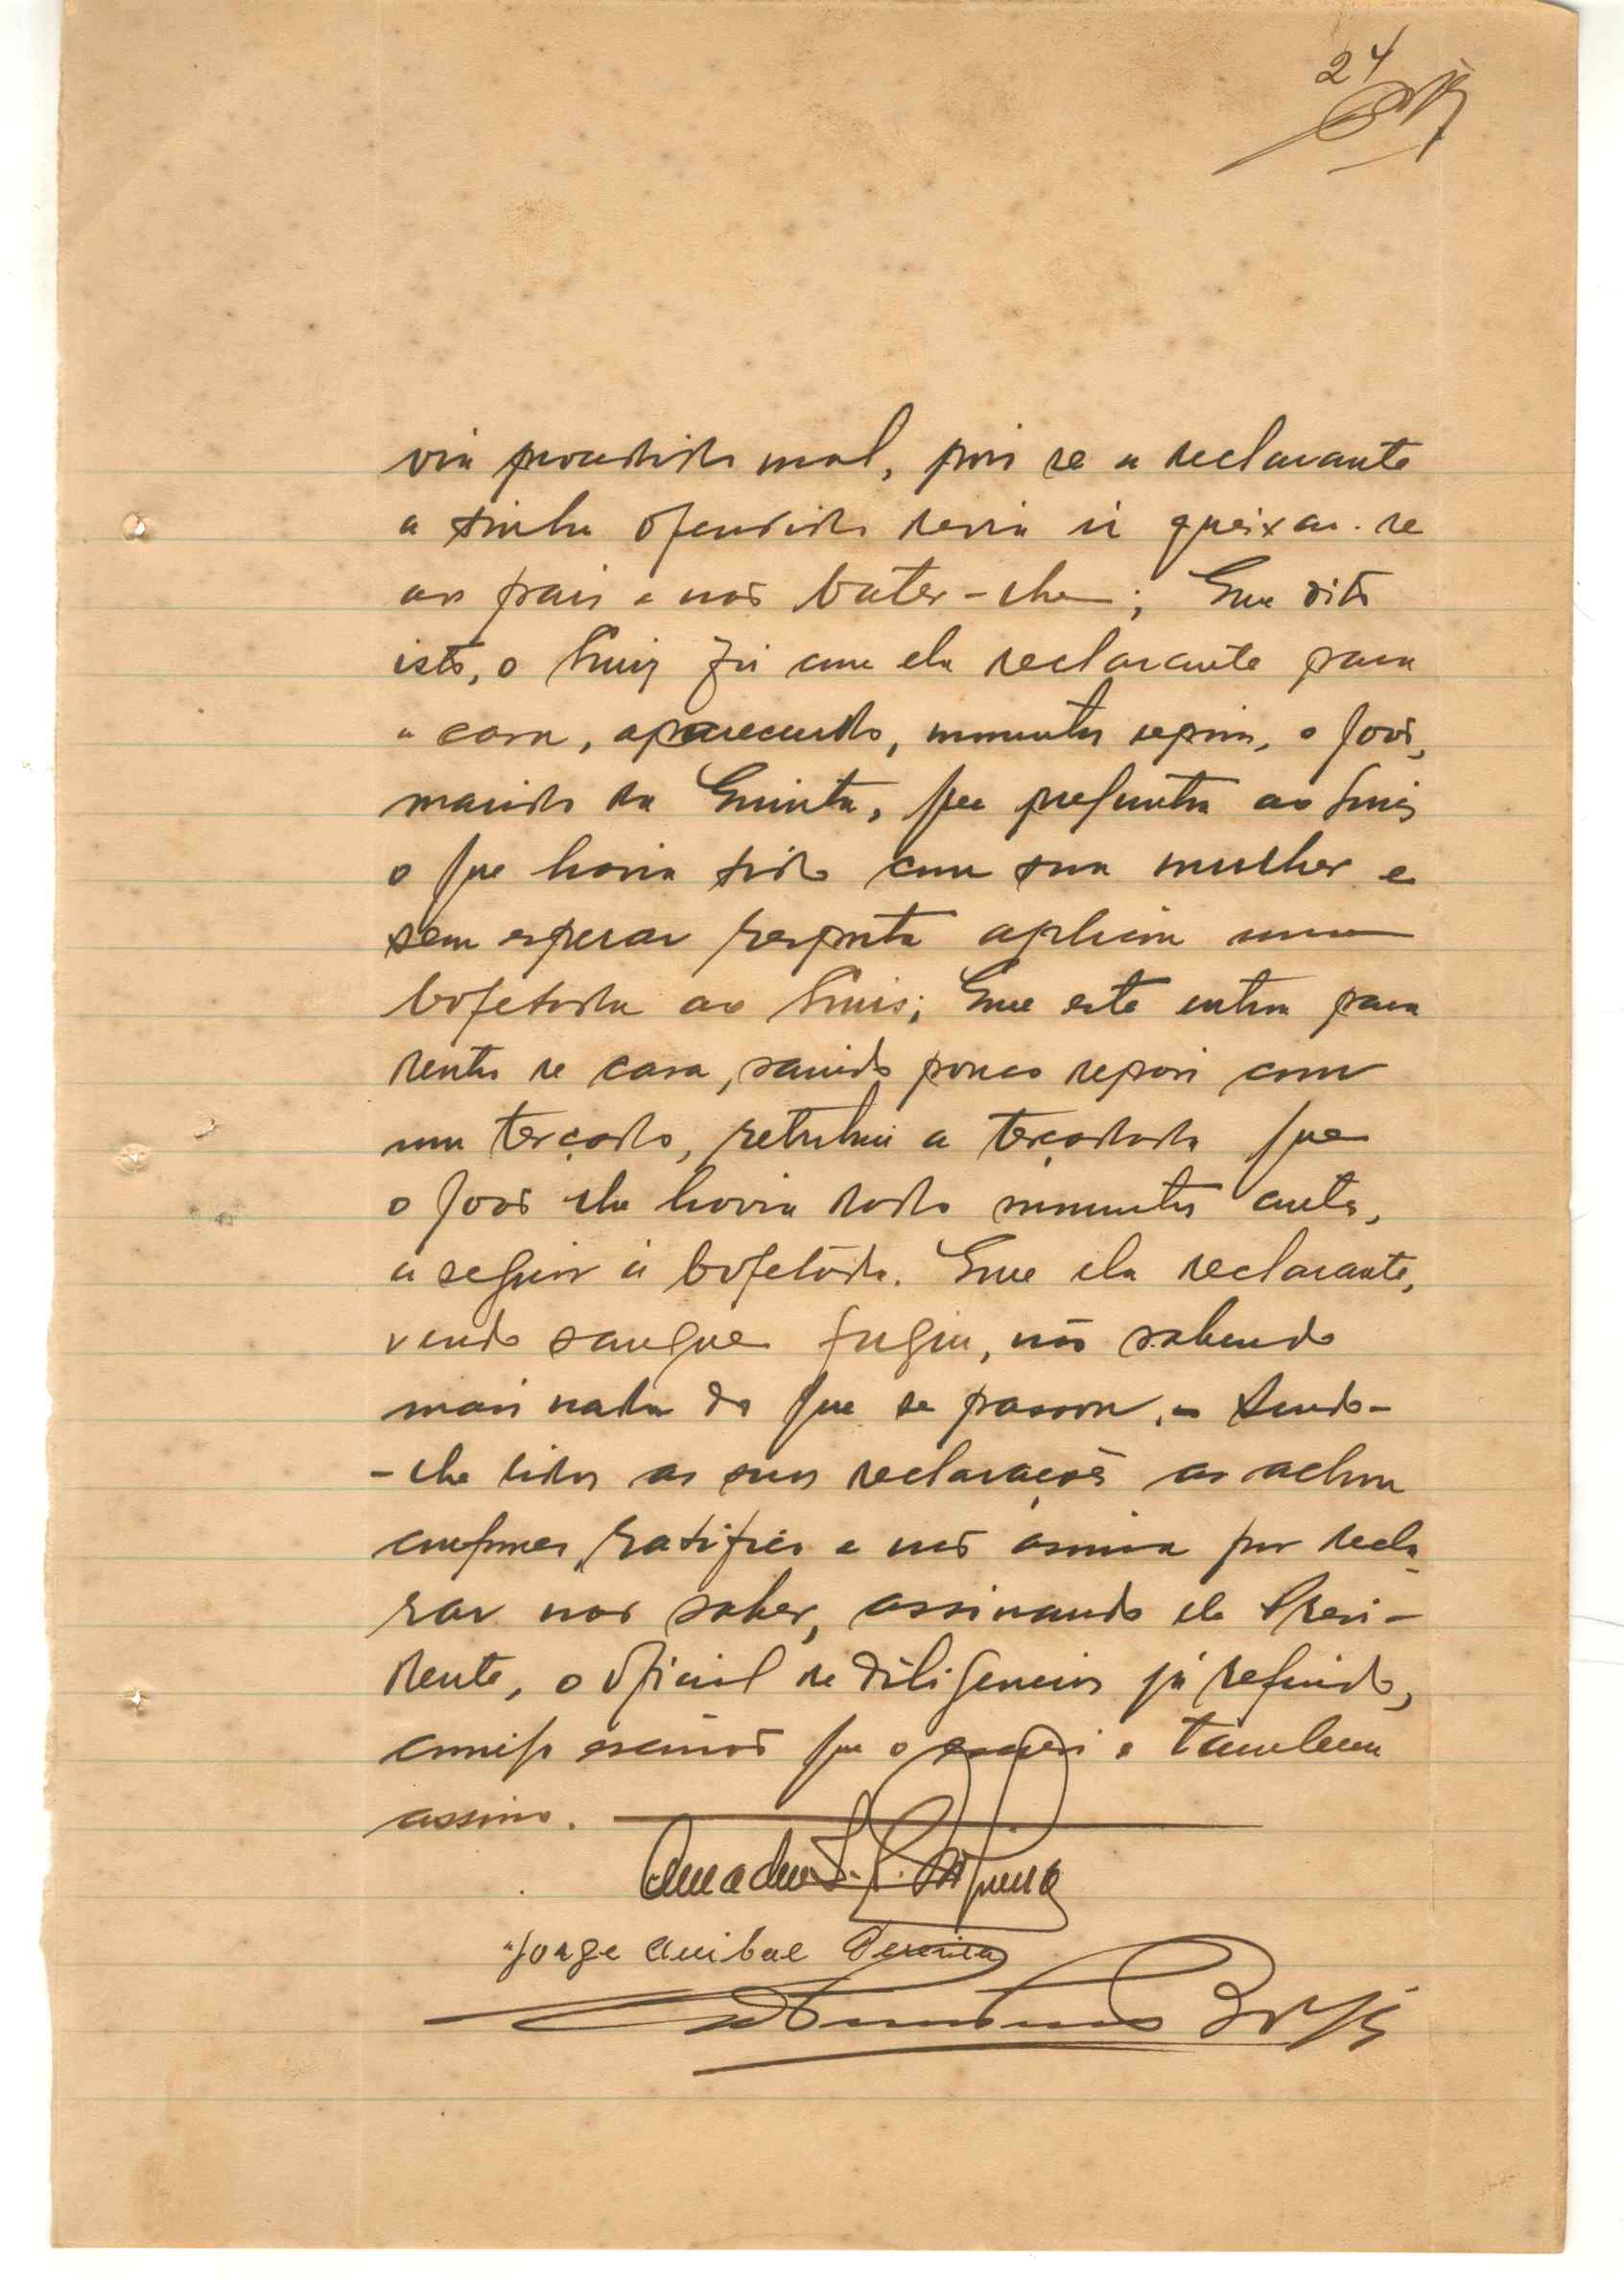 24
via procedido mal, pois se a declarante
a tinha ofendido devia ir queixar-se
aos pais e não bater-lhe; Que dito
isto, o Luis foi com ela declarante para
a casa, aparecendo, minutos depois, o João,
marido da Quinta, que preguntou ao Luis
o que havia tido com sua mulher e
sem esperar resposta aplicou uma
bofetada ao Luis; Que este entrou para
dentro de casa, saindo pouco depois com
um terçado, retribuiu a terçadada que
o João lhe havia dado minutos antes,
a seguir á bofetada. Que ela declarante,
vendo sangue fugiu, não sabendo
mais nada do que se passou. - Sendo-
-lhe lidas as suas declarações as achou
conformes, ratificou e não assina por decla-
rar não saber, assinando ele Presi-
dente, o oficial de diligencias já referido,
comigo escrivão que o escrevi e tambem
assino.
Amadeu
Jorge Anibal Pereira